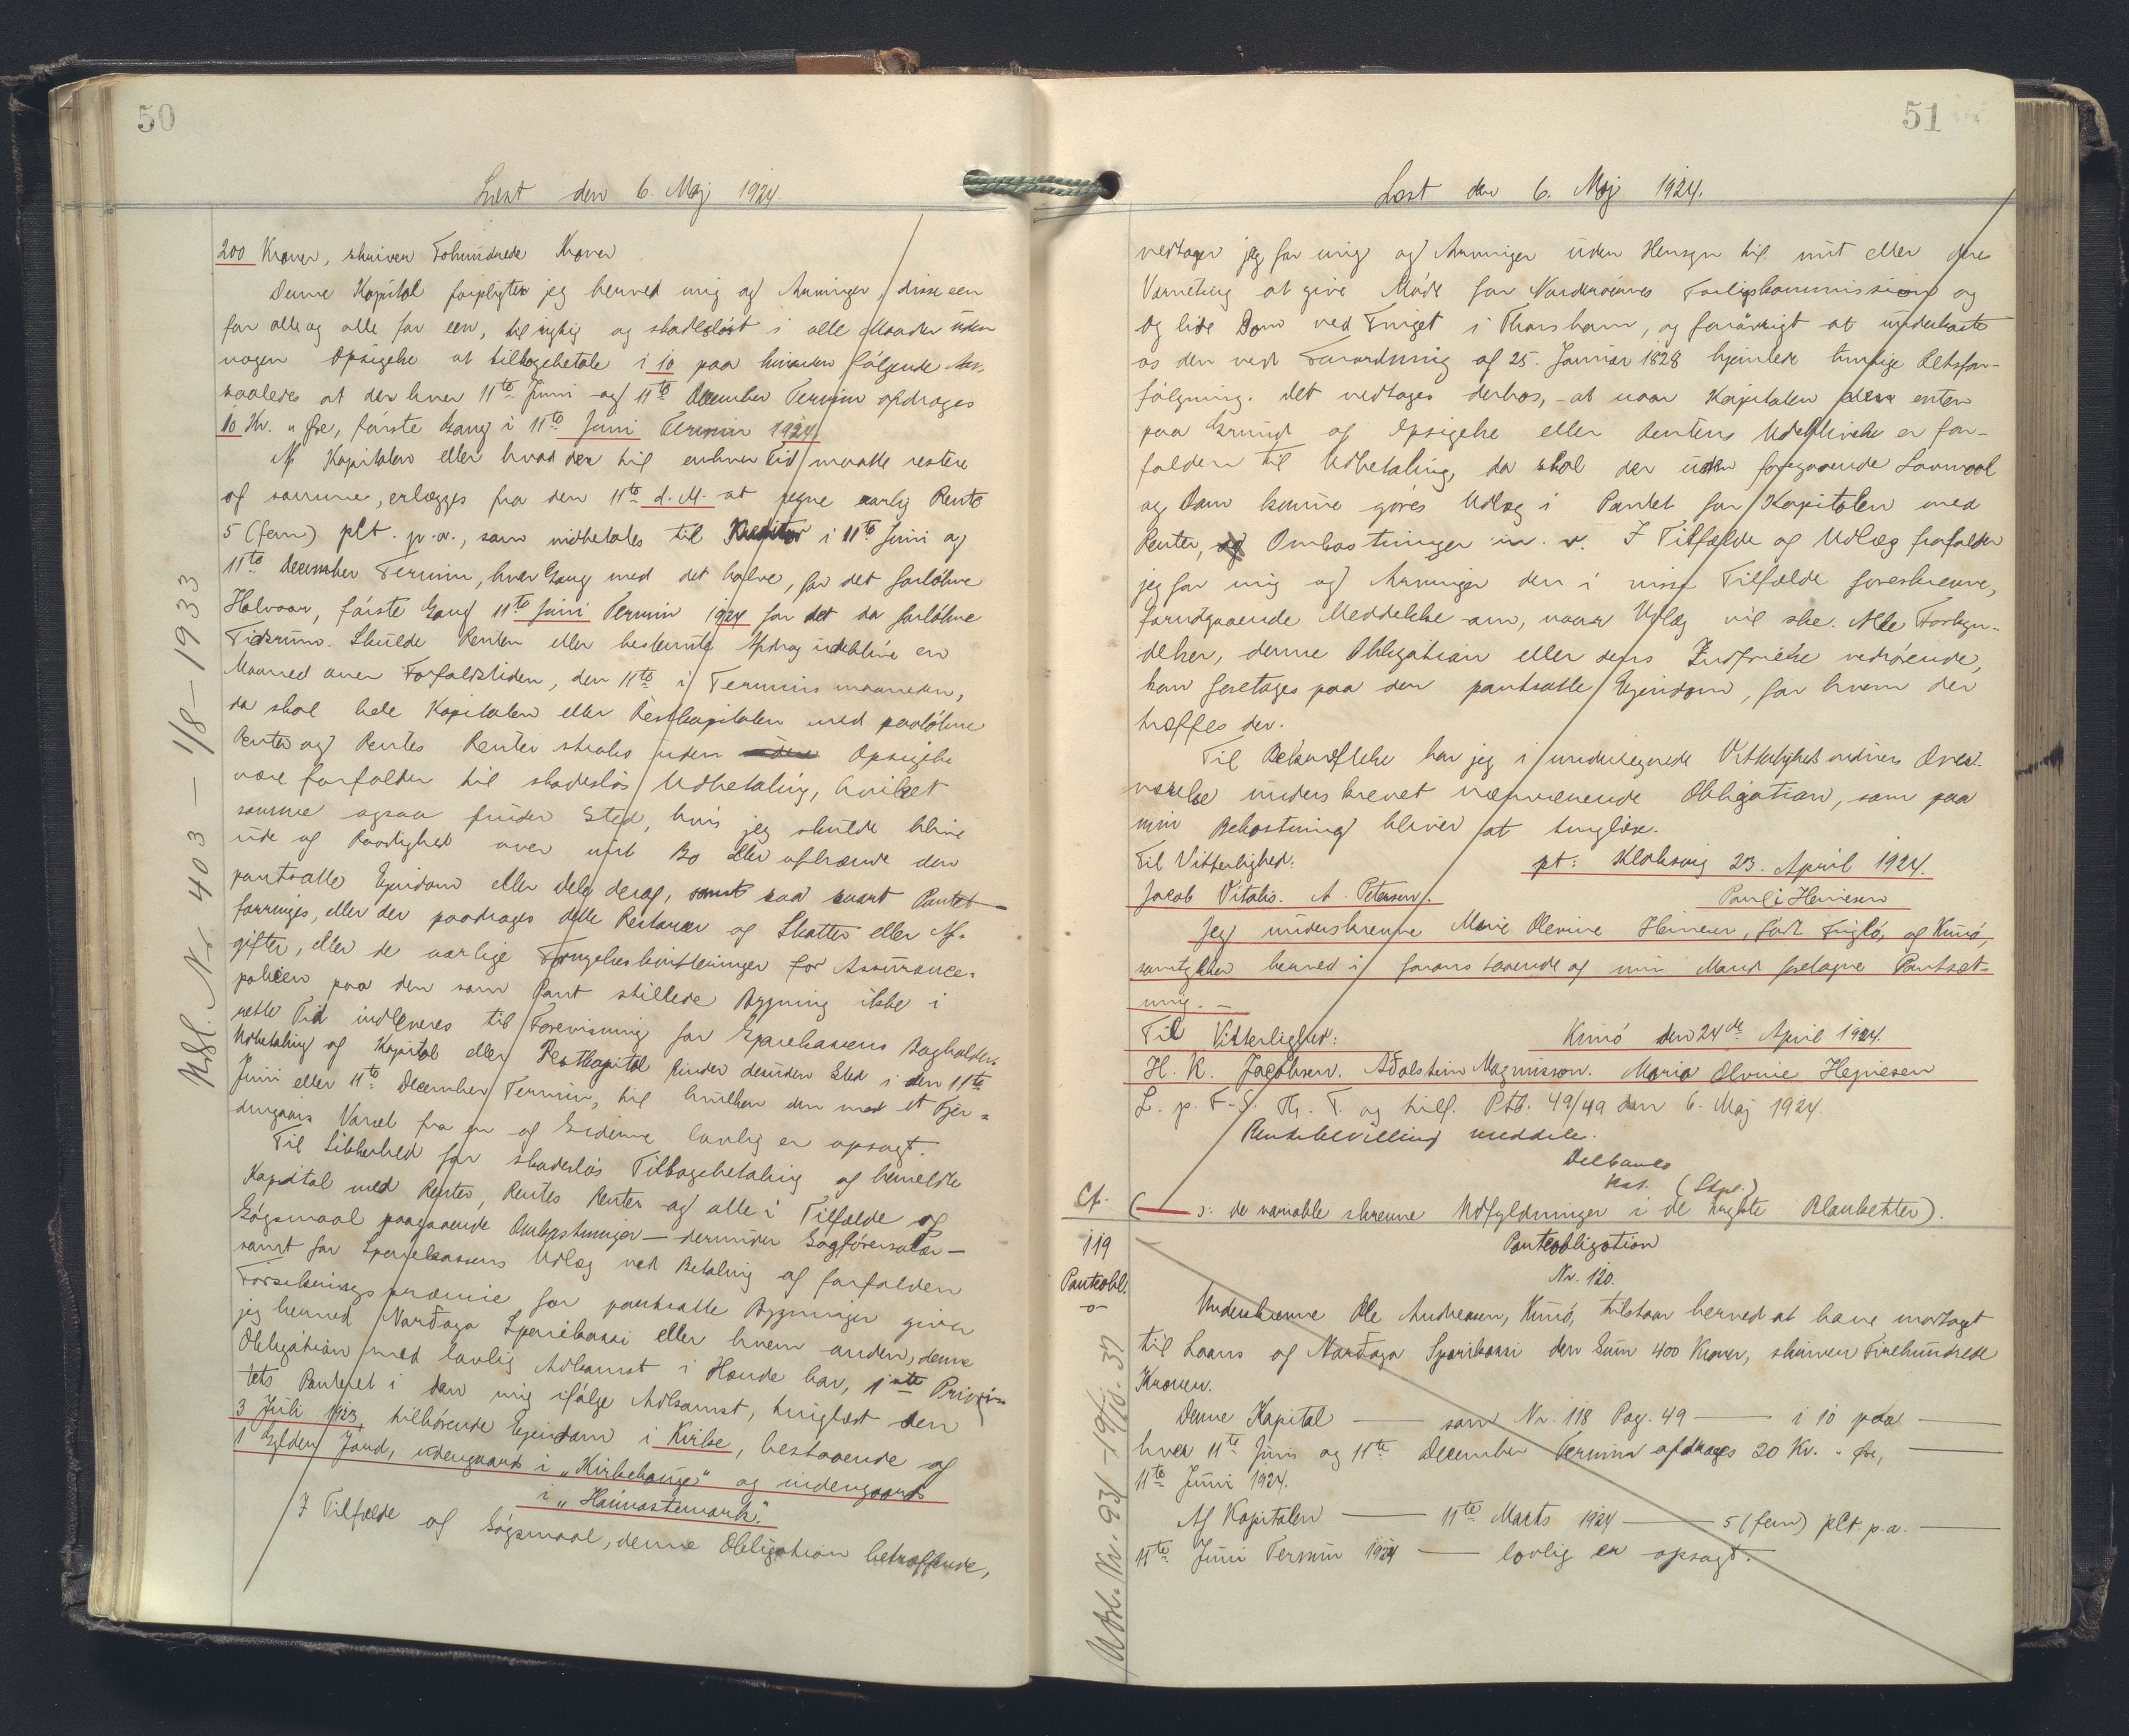 50
Læst den 6. Maj 1924
200 Kroner, skriver Tohundrede Kroner
Denne Kapital forpligter jeg herved mig og Arvinger, disse een
for alle og alle for een, til rigtig og skadesløst i alle Maader uden
nogen Opsigelse at tilbagebetale i 10 paa hinanden følgende Aar,
saaledes at der hver 11te Juni og 11te December Termin afdrages
10 Kr. " Øre, første Gang i 11te Juni Termin 1924
Af Kapitalen eller hvad der til enhver Tid maatte restere
af samme, erlægges fra den 11te d. M. at regne aarlig Rente
5 (fem) pCt. p. a., som indbetales til Kreditor i 11te Juni og
11te December Termin, hver Gang med det halve, for det forløbne
Halvaar, første Gang 11te Juni Termin 1924 for det da forløbne
Tidsrum. Skulde Renten eller bestemte Afdrag udeblive en
Maaned over Forfaldstiden, den 11te i Termins maaneden,
da skal hele Kapitalen eller Restkapitalen med paaløbne
Renter og Rentes Renter straks uden Opsigelse
være forfalden til skadesløs Udbetaling, hvilket
samme ogsaa finder Sted, hvis jeg skulde blive
ude af Raadighed over mit Bo eller afhænde den
pantsatte Ejendom eller dele deraf, samt saa snart Pantet
forringes, eller der paadrages dette Restancer af Skatter eller Af-
gifter, eller de aarlige Fornyelseskvitteringer for Assurance-
policen paa den som Pant stillede Bygning ikke i
rette Tid indleveres til Forevisning for Sparekassens Bogholder.
Udbetaling af Kapital eller Restkapital finder desuden Sted i den 11te
Juni eller 11te December Termin, til hvilken den med et Fjer-
dingaars Varsel fra en af Siderne lovlig er opsagt.
Til Sikkerhed for skadesløs Tilbagebetaling af bemeldte
Kapital med Renter, Rentes Renter og alle i Tilfælde af
Søgsmaal paagaaende Omkostninger — derunder Sagførersalær —
samt for Sparekassens Udlæg ved Betaling af forfalden
Forsikringspræmie for pantsatte Bygninger giver
jeg herved Norðoya Sparikassi eller hvem anden, denne
Obligation med lovlig Adkomst i Hænde har, 1ste Priori-
tets Panteret i den mig ifølge Adkomst, tinglæst den
3 Juli 1923, tilhørende Ejendom i Kirke, bestaaende af
1 Gylden Jord, udengaards i „Kirkehauge" og indengaards
i „Heimastemark".
I Tilfælde af Søgsmaal, denne Obligation betræffende,
Udsl. Nr. 403 — 1/8 — 1933
51
Læst den 6. Maj 1924.
vedtager jeg for mig og Arvinger uden Hensyn til mit eller deres
Værneting at give Møde for Norderøernes Forligskommission og
og lide Dom ved Tinget i Thorshavn, og forøvrigt at underkaste
os den ved Forordning af 25. Januar 1828 hjemlede hurtige Retsfor-
følgning. Det vedtages derhos, at naar Kapitalen enten
paa Grund af Opsigelse eller Rentens Udeblivelse er for-
falden til Udbetaling, da skal der uden foregaaende Lovmaal
og Dom kunne gøres Udlæg i Pantet for Kapitalen med
Renter, Omkostninger m. v. I Tilfælde af Udlæg frafalder
jeg for mig og Arvinger den i visse Tilfælde foreskrevne,
forudgaaende Meddelelse om, naar Udlæg vil ske. Alle Forkyn-
delser, denne Obligation eller dens Indfrielse vedrørende,
kan foretages paa den pantsatte Ejendom, for hvem der
træffes der.
Til Bekræftelse har jeg i undertegnede Vitterlighedsvidners Over-
værelse underskrevet nærværende Obligation, som paa
min Bekostning bliver at tinglæse.
Til Vitterlighed. pt: Klaksvig 23. April 1924.
Jacob Vitalis. A. Petersen. Pauli Heinesen
Jeg underskrevne Marie Olevine Heinesen, født Fuglø, af Kunø,
samtykker herved i foranstaaende af min Mand foretagne Pantsæt-
ning. —
Til Vitterlighed: Kunø den 24de April 1924.
H. K. Jacobsen. Aðalstein Magnusson. Maria Olvine Hejnesen
L. p. F.-S. Th. T. og tilf. Ptb. 49/49 den 6. Maj 1924.
Rentebevilling meddelt.
Kst. (Stpl.)
Cf. ( — ɔ: de variable skrevne Udfyldninger i de trykte Blanketter).
119 Panteobligation
Panteobl. Nr. 120.
Underskrevne Ole Andreasen, Kunø, tilstaar herved at have modtaget
til Laans af Norðoya Sparikassi den Sum 400 Kroner, skriver Firehundrede
Kroner.
Denne Kapital — som Nr. 118 Pag. 49 — i 10 paa —
hver 11te Juni og 11te December Termin afdrages 20 Kr. " Øre, —
11te Juni 1924.
Af Kapitalen — 11te Marts 1924 — 5 (fem) pCt. p. a. —
11te Juni Termin 1924 — lovlig er opsagt.
Udsl. Nr. 931 - 19/10. 37